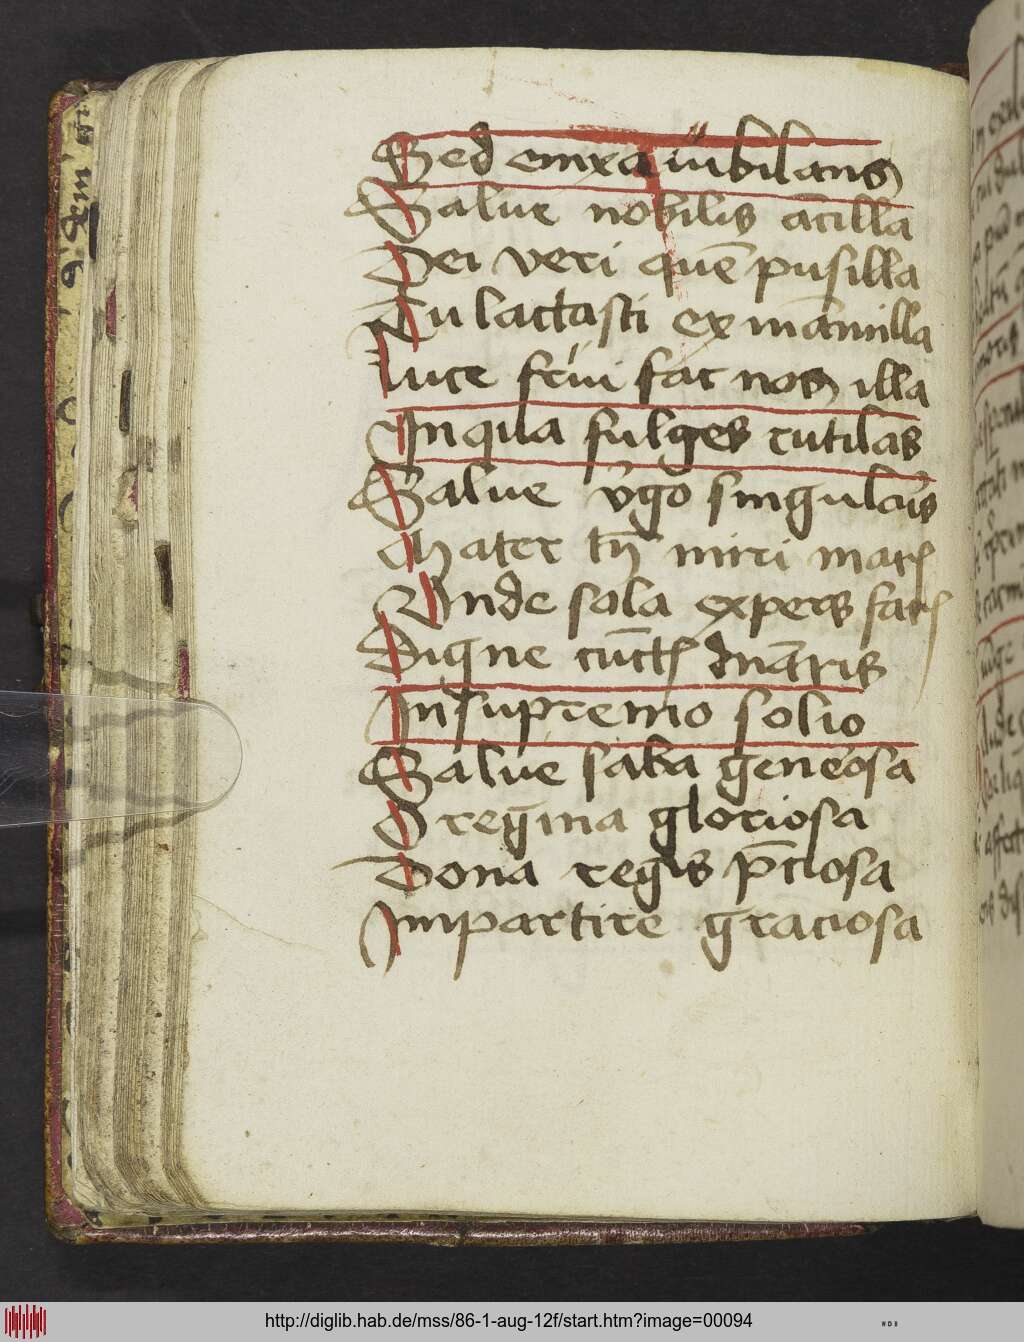 Sed enixa iubilans
Salue nobilis ācilla
Dei veri quē pusilla
Tu lactasti ex māmilla
Luce frui fac nos illa
In qua fulges rutilās
Salue v̄go singularis
Mater tn̄ miri
Vnde sola expers
Digne dn̄aris
In supremo solio
Salue saba generosa
O regina gloriosa
Dona regis p̄ciosa
Impartire graciosa
http://diglib.hab.de/mss/86-1-aug-12f/start.htm?image=00094